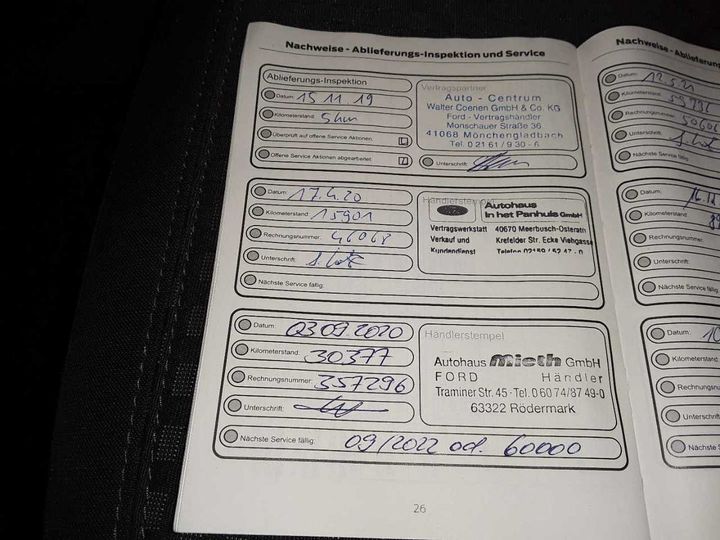 Nachweise - Ablieferungs-Inspektion und Service
Ablieferungs-Inspektion
Datum: 15.11.19
Kilometerstand: 5 km
Überprüft auf offene Service Aktionen:
Offene Service Aktionen abgearbeitet:
Vertragspartner
Auto - Centrum
Walter Coenen GmbH & Co. KG
Ford - Vertragshändler
Monschauer Straße 36
41068 Mönchengladbach
Tel. 0 21 61 / 9 30 - 6
Unterschrift:
Datum: 17.4.20
Kilometerstand: 15901
Rechnungsnummer: 46068
Unterschrift:
Nächste Service fällig:
Händlerstempel
Autohaus
In het Panhuis GmbH
Vertragswerkstatt 40670 Meerbusch-Osterath
Verkauf und Krefelder Str. Ecke Viehgasse
Kundendienst Telefon 02159 / 52 47 - 0
Datum: 03.09.2020
Kilometerstand: 30377
Rechnungsnummer: 357296
Unterschrift:
Nächste Service fällig: 09/2022 od. 60000
Händlerstempel
Autohaus Mieth GmbH
FORD Händler
Traminer Str. 45 - Tel. 0 60 74/87 49-0
63322 Rödermark
26
Nachweise - Ablieferu
Datum: 12.5.21
Kilometerstand:
Rechnungsnummer:
Unterschrift:
Nächste Service fällig:
Datum:
Kilometerstand:
Rechnungsnummer:
Unterschrift:
Nächste Service fällig:
Datum: 10
Kilometerstand:
Rechnungsnu
Unterschrift:
Nächste S